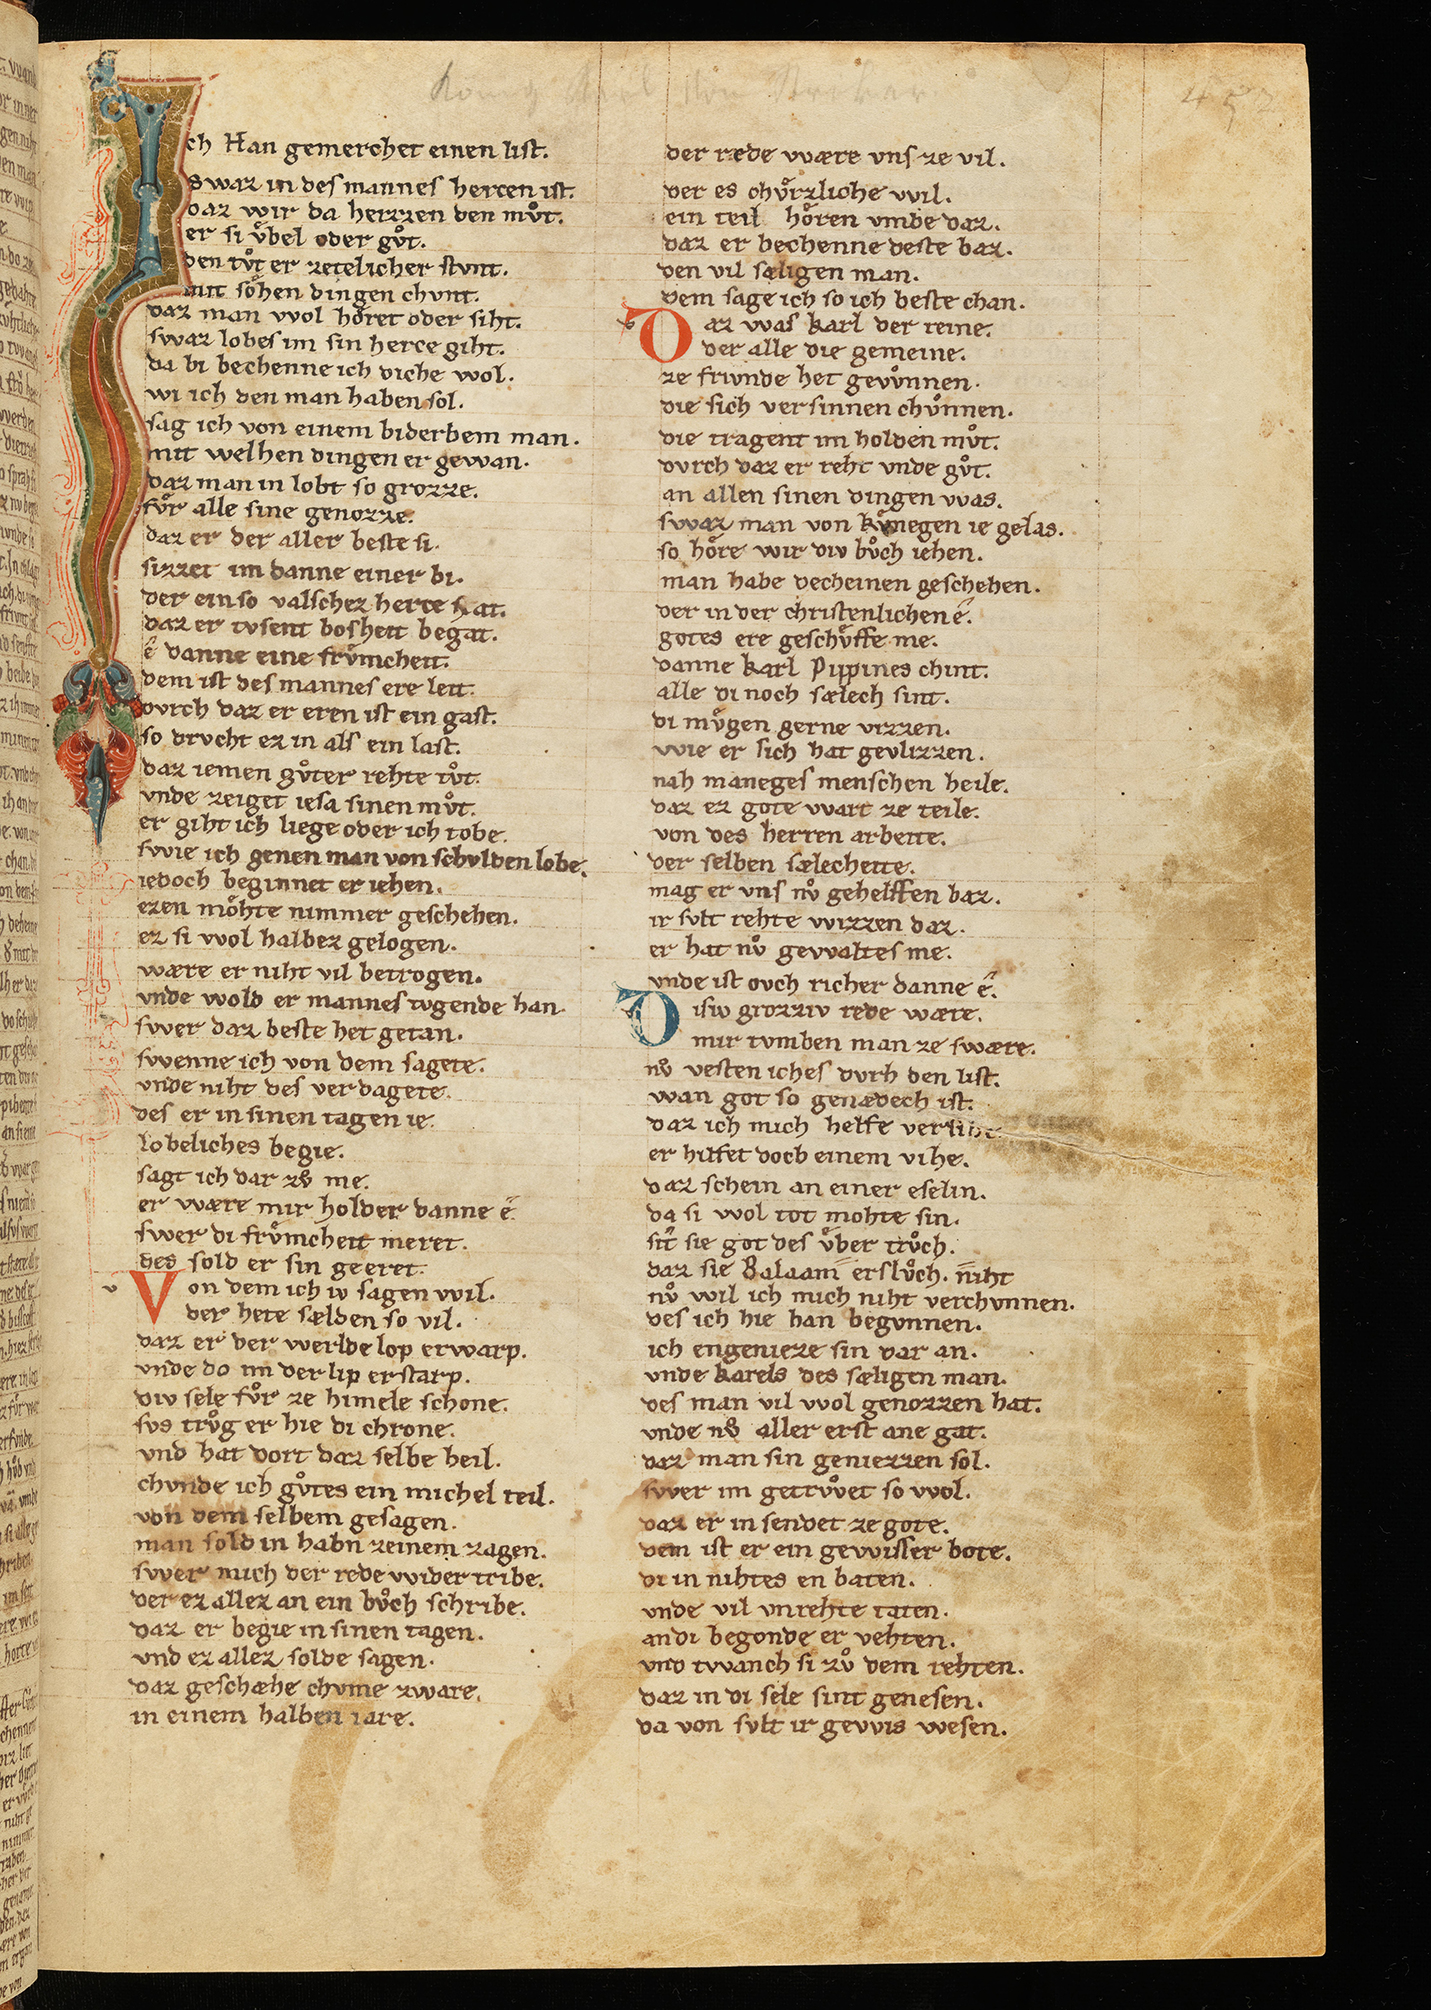 Ich Han gemerchet einen list.
swaz in des mannes hercen ist.
daz wir da heizzen den mvͦt.
er si vͤbel oder gvͦt.
den tvͦt er zetelicher stvnt.
mit sohen dingen chvnt.
daz man wol hoͤret oder siht.
swaz lobes im sin herce giht.
da bi bechenne ich diche wol.
wi ich den man haben sol.
sag ich von einem biderbem man.
mit welhen dingen er gewan.
daz man in lobt so grozze.
fvͦr alle sine genozze.
daz er der aller beste si.
sizzet im danne einer bi.
der ein so valschez herce hat.
daz er tvsent bosheit begat.
ê danne eine frvͤmcheit.
dem ist des mannes ere leit.
dvrch daz er eren ist ein gast.
so drvcht ez in als ein last.
daz iemen gvͦter rehte tvͦt.
vnde zeiget iesa sinen mvͦt.
er giht ich liege oder ich tobe.
swie ich genen man von schvlden lobe.
iedoch beginnet er iehen.
ezen moͤhte nimmer geschehen.
ez si wol halbez gelogen.
wære er niht vil betrogen.
vnde wold er mannes tvgende han.
swer daz beste het getan.
swenne ich von dem sagete.
vnde niht des verdagete.
des er in sinen tagen ie.
lobeliches begie.
sagt ich dar zvͦ me.
er wære mir holder danne ê.
swer di frvͤmcheit meret.
des sold er sin geeret.
Von dem ich iv sagen wil.
der hete sælden so vil.
daz er der werlde lop erwarp.
vnde do im der lip erstarp.
div sele fvͦr ze himele schone.
svs trvͦg er hie di chrone.
vnd hat dort daz selbe heil.
chvnde ich gvͦtes ein michel teil.
von dem selbem gesagen.
man sold in habn zeinem zagen.
swer mich der rede wider tribe.
der ez allez an ein bvͦch schribe.
daz er begie in sinen tagen.
vnd ez allez solde sagen.
daz geschæhe chvme zware.
in einem halben iare.
der rede wære vns ze vil.
der es chvͤrzliche wil.
ein teil hoͤren vmbe daz.
daz er bechenne deste baz.
den vil sæligen man.
dem sage ich so ich beste chan.
Daz was karl der reine.
der alle die gemeine.
ze frivnde het gevͦnnen.
die sich versinnen chvͦnnen.
die tragent im holden mvͦt.
dvrch daz er reht vnde gvͦt.
an allen sinen dingen was.
swaz man von kvͤnegen ie gelas.
so hoͤre wir div bvͦch iehen.
man habe decheinen geschehen.
der in der christenlichen ê.
gotes ere geschvͤffe me.
danne karl Pippines chint.
alle di noch sælech sint.
di mvͤgen gerne vizzen.
wie er sich hat gevlizzen.
nah maneges menschen heile.
daz ez gote wart ze teile.
von des herren arbeite.
der selben sælecheite.
mag er vns nvͦ gehelffen baz.
ir svlt rehte wizzen daz.
er hat nvͦ gewaltes me.
vnde ist ovch richer danne ê.
Disiv grozziv rede wære.
mir tvmben man ze swære.
nvͦ vesten iches dvrh den list.
wan got so genædech ist.
daz ich mich helfe versihe.
er hilfet doch einem vihe.
daz schein an einer eselin.
da si wol tot mohte sin.
sît sie got des vͤber trvͦch.
daz sie Balaam erslvͦch. niht
nvͦ wil ich mich niht verchvnnen.
des ich hie han begvnnen.
ich engenieze sin dar an.
vnde karels des sæligen man.
des man vil wol genozzen hat.
vnde nvͦ aller erst ane gat.
daz man sin geniezzen sol.
swer im getrvͦwet so wol.
daz er in sendet ze gote.
dem ist er ein gewisser bote.
di in nihtes en baten.
vnde vil vnrehte taten.
an di begonde er vehten.
vnd twanch si zvͦ dem rehten.
daz in di sele sint genesen.
da von svlt ir gewis wesen.